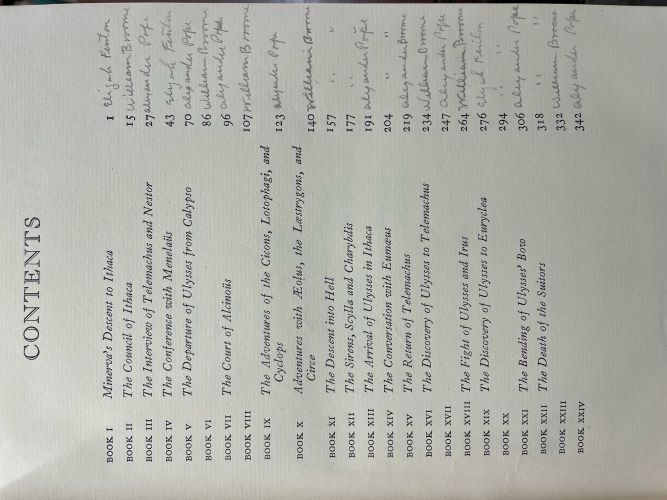 CONTENTS
BOOK I Minerva's Descent to Ithaca 1 Elijah Fenton
BOOK II The Council of Ithaca 15 William Broome
BOOK III The Interview of Telemachus and Nestor 27 alexander Pope
BOOK IV The Conference with Menelaüs 43 Elijah Fenton
BOOK V The Departure of Ulysses from Calypso 70 alexander Pope
BOOK VI 86 William Broome
BOOK VII The Court of Alcinoüs 96 alexander Pope
BOOK VIII 107 William Broome
BOOK IX The Adventures of the Cicons, Lotophagi, and
Cyclops 123 alexander Pope
BOOK X Adventures with Æolus, the Læstrygons, and
Circe 140 William Broome
BOOK XI The Descent into Hell 157 " "
BOOK XII The Sirens, Scylla and Charybdis 177 " "
BOOK XIII The Arrival of Ulysses in Ithaca 191 alexander Pope
BOOK XIV The Conversation with Eumæus 204 " "
BOOK XV The Return of Telemachus 219 alexander Broome
BOOK XVI The Discovery of Ulysses to Telemachus 234 William Broome
BOOK XVII 247 alexander Pope
BOOK XVIII The Fight of Ulysses and Irus 264 William Broome
BOOK XIX The Discovery of Ulysses to Euryclea 276 Elijah Fenton
BOOK XX 294 " "
BOOK XXI The Bending of Ulysses' Bow 306 alexander Pope
BOOK XXII The Death of the Suitors 318 " "
BOOK XXIII 332 William Broome
BOOK XXIV 342 alexander Pope